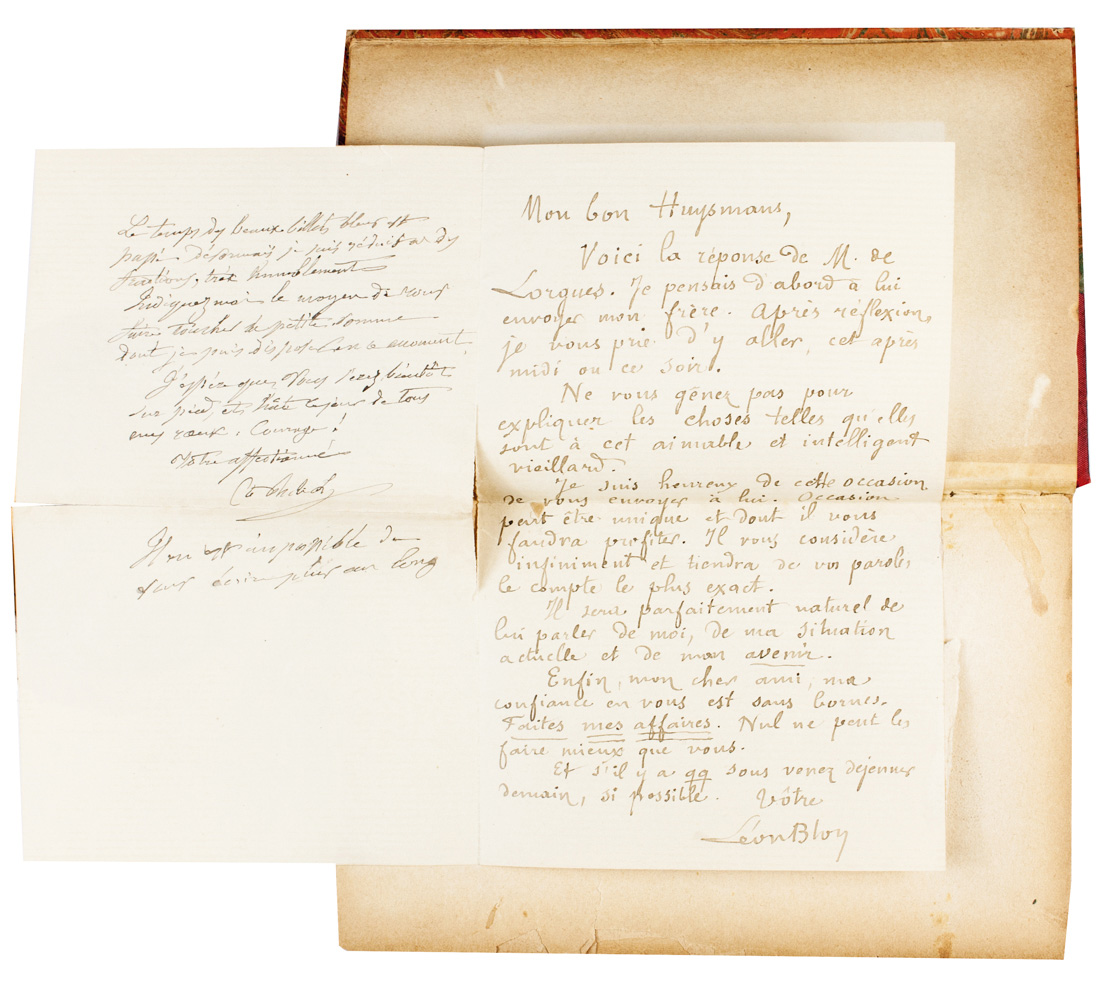 Le temps des beaux billets bleus est
passé. Désormais je suis réduit à des
fractions, très humblement
Indiquez moi le moyen de vous
faire toucher la petite somme
dont je puis disposer en ce moment
J'espère que vous serez bientôt
sur pied et
vœux. Courage !
Votre affectionné
Il m'est impossible de
vous écrire plus au long
Mon bon Huysmans,
Voici la réponse de M. de
Lorgues. Je pensais d'abord à lui
envoyer mon frère. Après réflexion,
je vous prie d'y aller, cet après
midi ou ce soir.
Ne vous gênez pas pour
expliquer les choses telles qu'elles
sont à cet aimable et intelligent
vieillard.
Je suis heureux de cette occasion
de vous envoyer à lui. Occasion
peut être unique et dont il vous
faudra profiter. Il vous considère
infiniment et tiendra de vos paroles
le compte le plus exact.
Il sera parfaitement naturel de
lui parler de moi, de ma situation
actuelle et de mon avenir.
Enfin, mon cher ami, ma
confiance en vous est sans bornes.
Faites mes affaires. Nul ne peut les
faire mieux que vous.
Et s'il y a qq sous venez déjeuner
demain, si possible. Vôtre
Léon Bloy